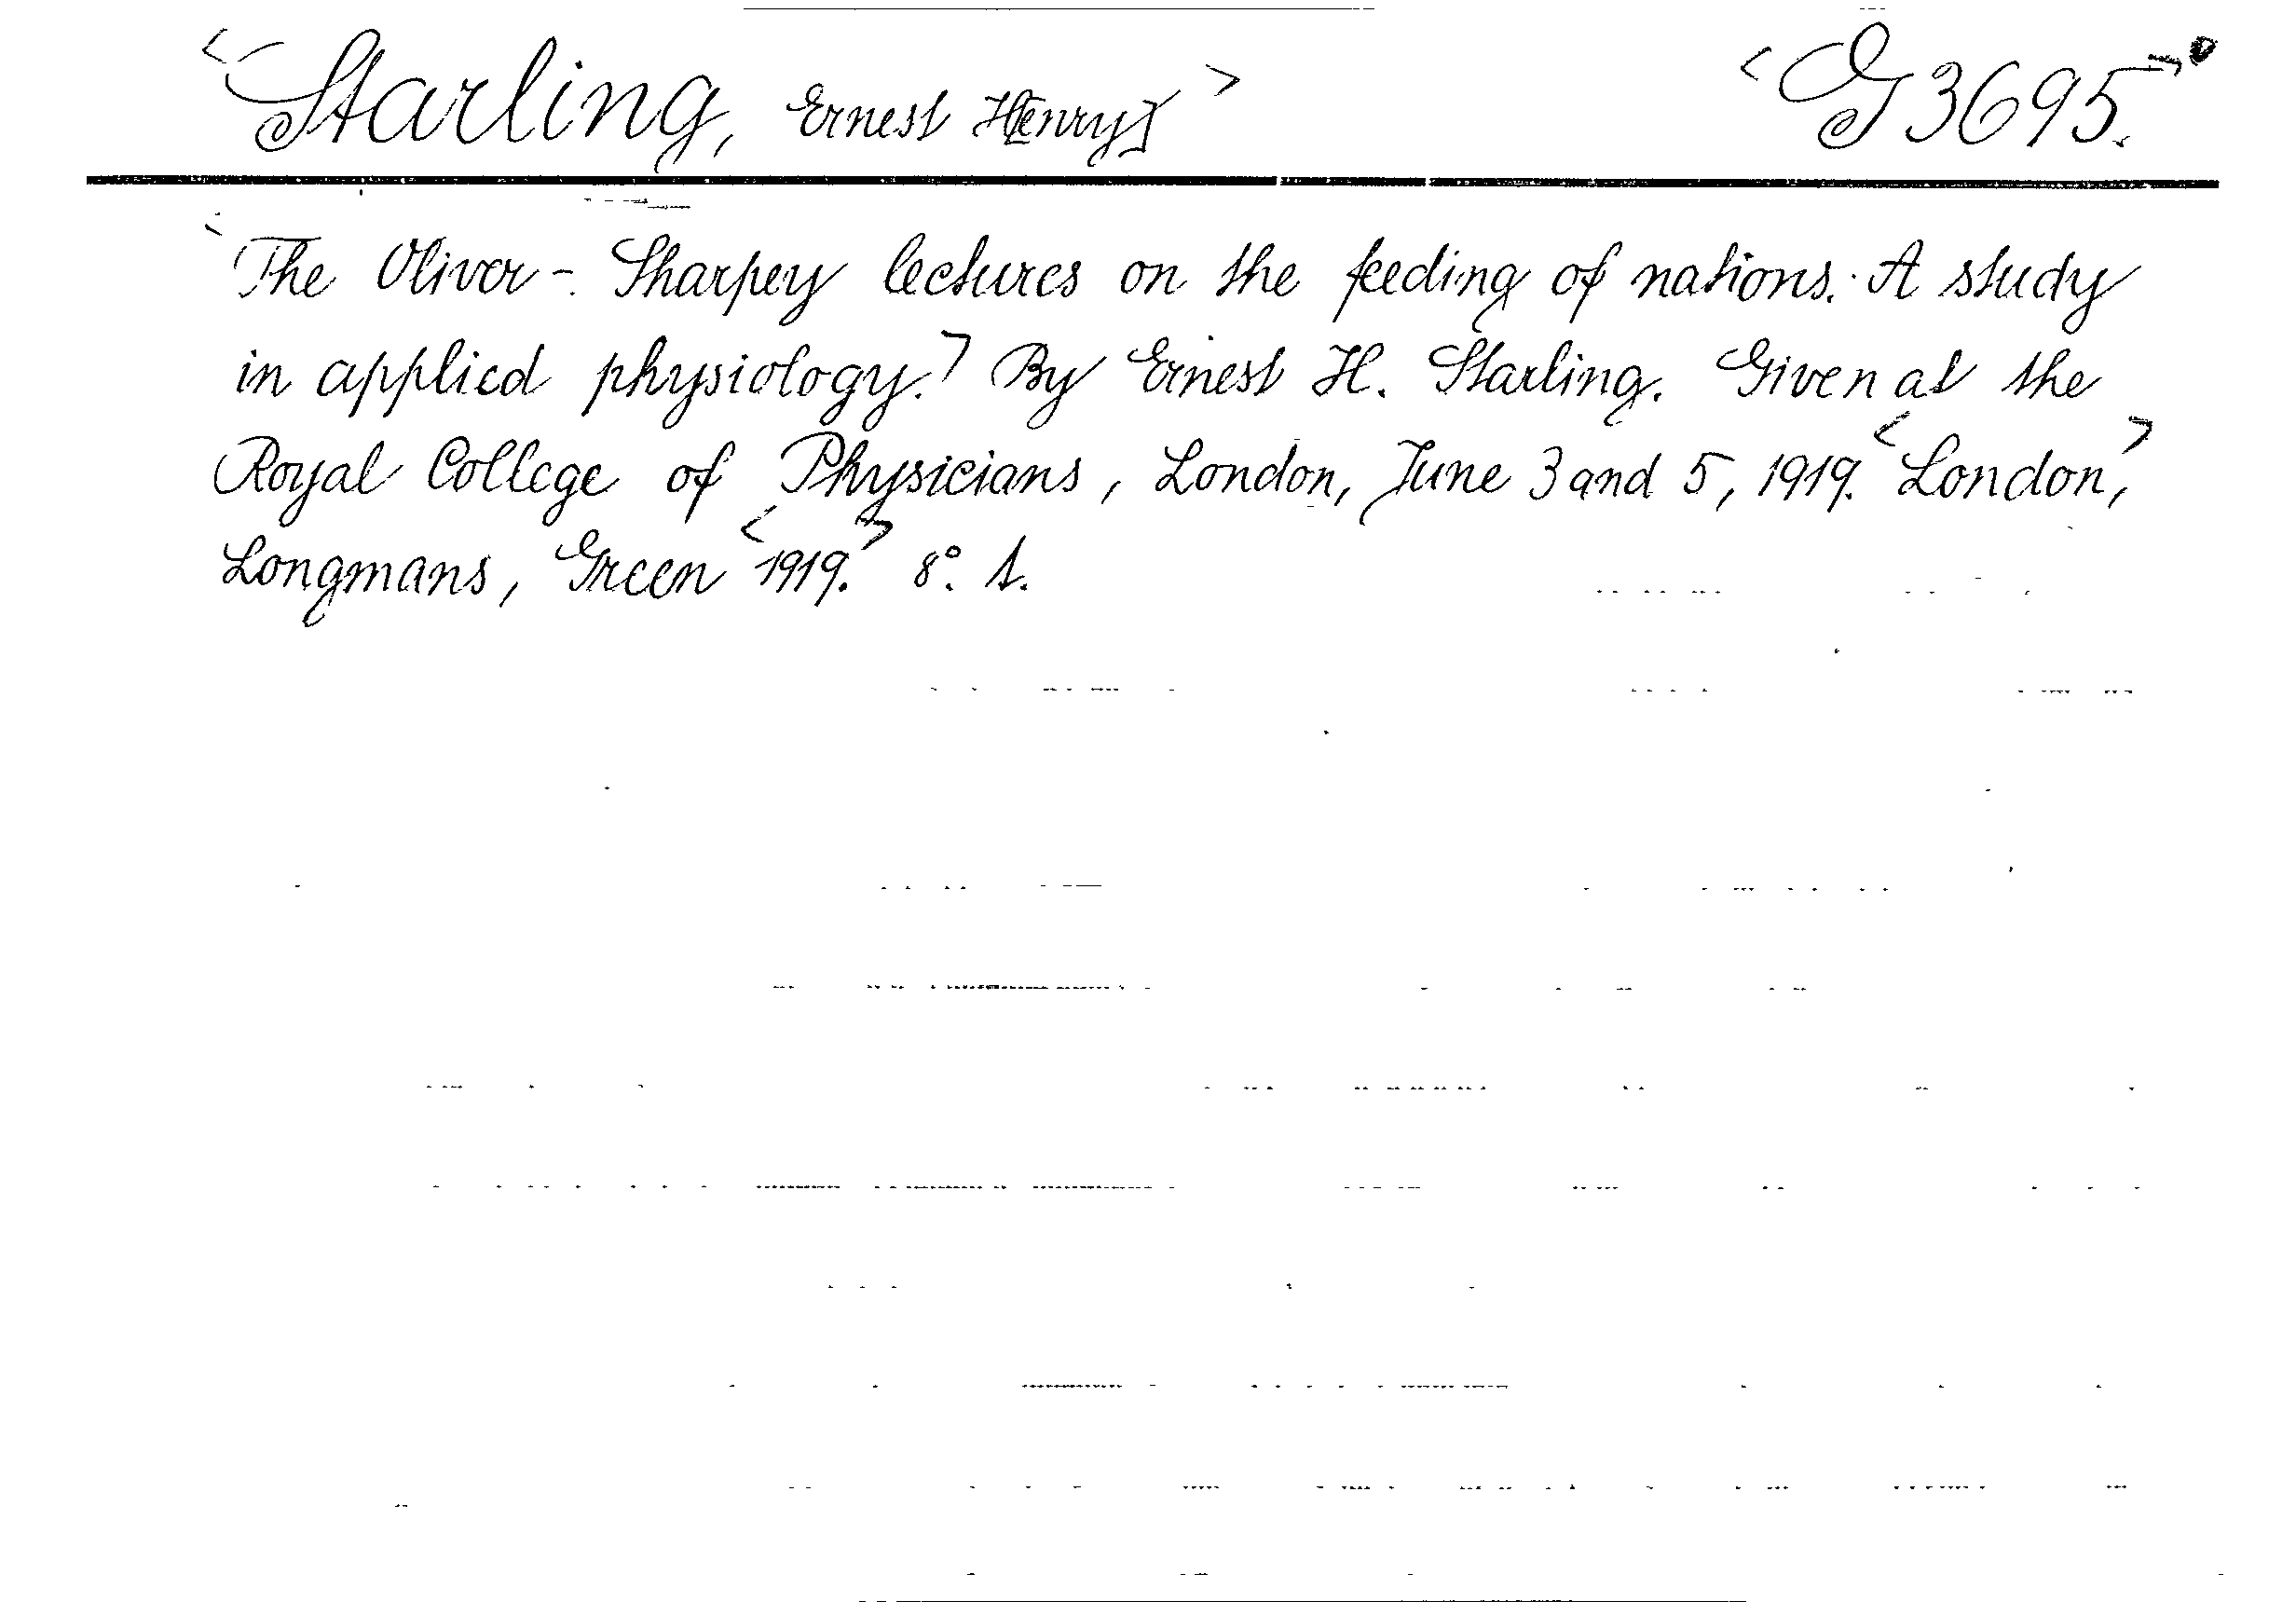 <Starling, Ernest H[enry]> <G 3695.>
<The Oliver-Sharpey lectures on the feeding of nations. A study
in applied physiology.> By Ernest H. Starling. Given at the
Royal College of Physicians, London, June 3 and 5, 1919. <London,>
Longmans, Green <1919.> 8°. 1.